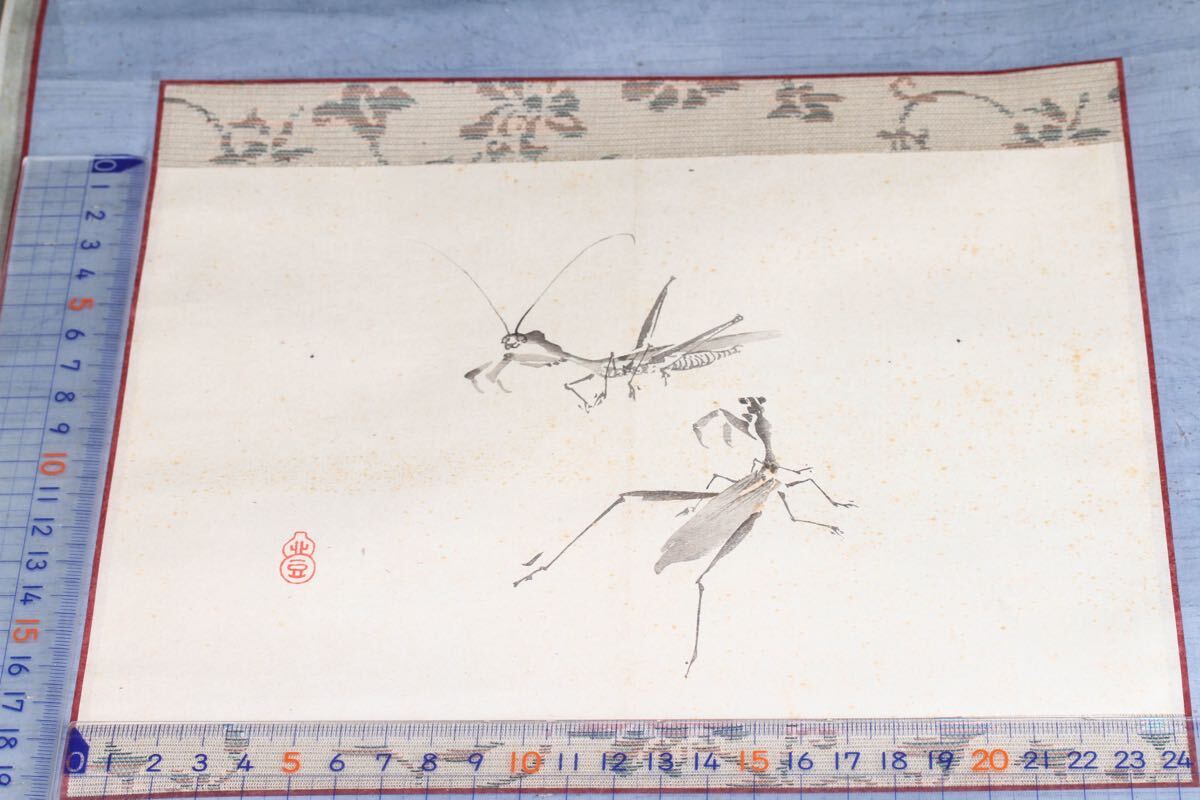 0 1 2 3 4 5 6 7 8 9 10 11 12 13 14 15 16 17 18 19
北豆
0 1 2 3 4 5 6 7 8 9 10 11 12 13 14 15 16 17 18 19 20 21 22 23 24